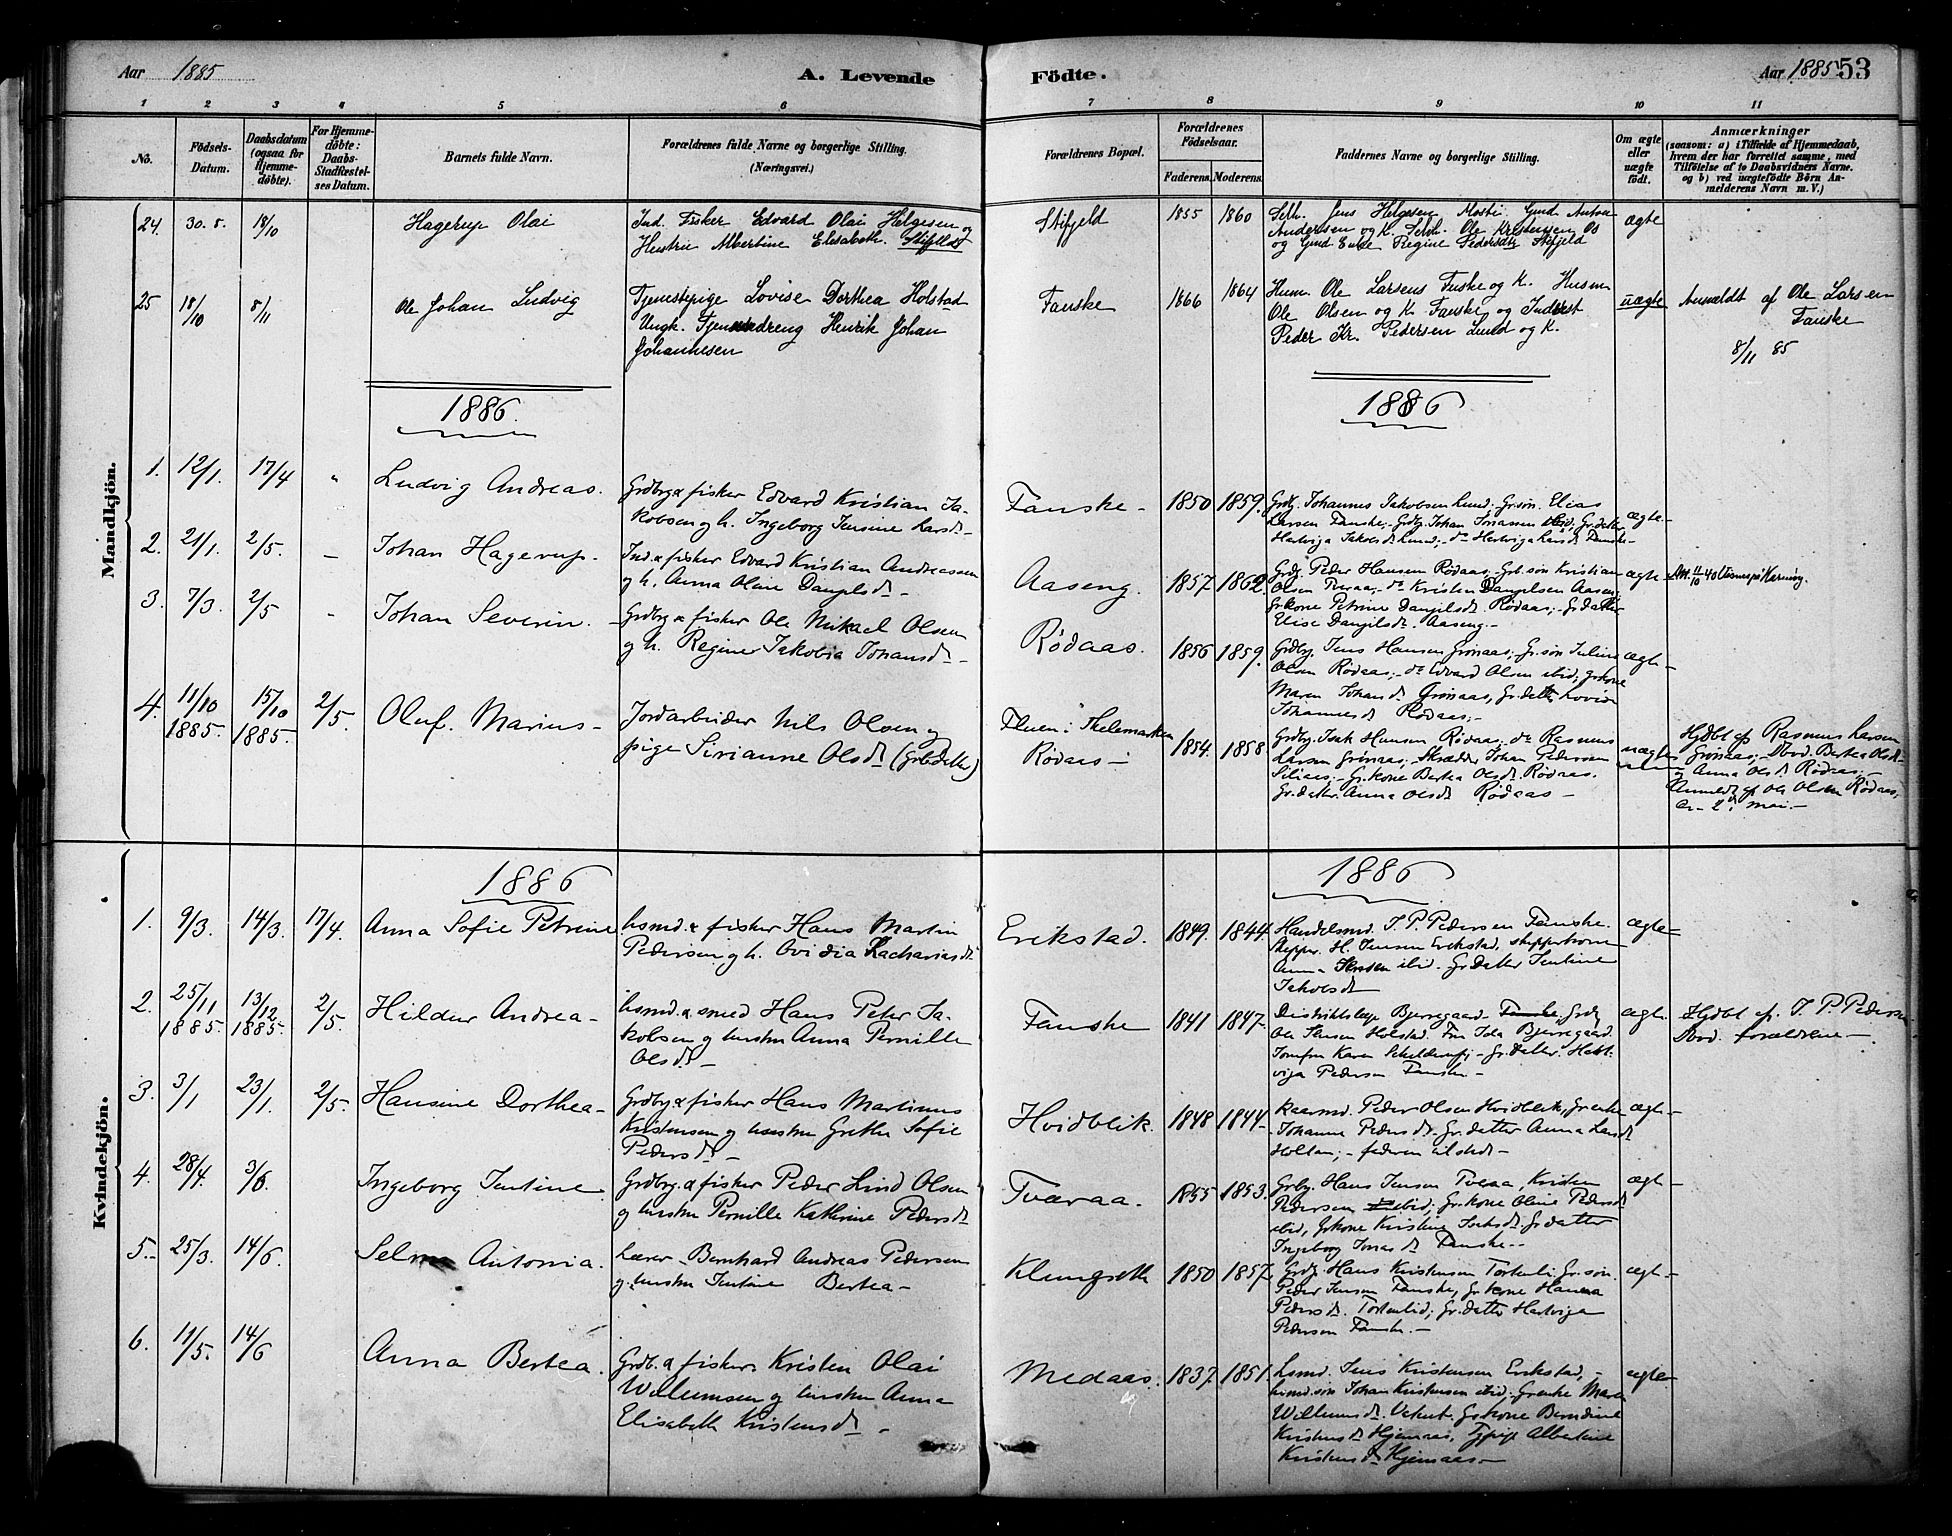 Aar 1885
A. Levende
Födte.
Aar 1885 53
1 2 3 4 5 6 7 8 9 10 11
No.
Födsels-
Datum.
Daabsdatum
(ogsaa for
Hjemme-
döbte).
For Hjemme-
döbte:
Daabs-
Stadfæstel-
ses Datum.
Barnets fulde Navn.
Forældrenes fulde Navne og borgerlige Stilling.
(Næringsvei.)
Forældrenes Bopæl.
Forældrenes
Födselsaar.
Faderens. Moderens.
Faddernes Navne og borgerlige Stilling.
Om ægte
eller
uægte
födt.
Anmærkninger
(saasom: a) i Tilfælde af Hjemmedaab,
hvem der har forrettet samme, med
Tilföielse af to Daabsvidners Navne.
og b) ved uægtefödte Börn An-
melderens Navn m. V.)
Mandkjön.
24. 30.8. 18/10
Hagerup Olai
Ind. Fisker Edvard Olai Helgesen og
Hustru Albertine Elisabeth.
Stifjeld
1855 1860
Selh. Jens Helgesen Mosti Gmd Anton
Andersen og K. Selh. Ole Kristensen Os
og Gmd Enke Regine Pedersdtr Stifjeld
ægte
25 18/10 8/11
Ole Johan Ludvig
Tjenestepige Lovise Dorthea Holstad
Ungk. Tjenestedreng Henrik Johan
Johannesen
Fauske
1866 1864
Husm. Ole Larsens Fuske og K. Husm
Ole Olsen og K. Fauske og Inderst
Peder Kr. Pedersen Lund og K.
uægte
Anmeldt af Ole Larsen
Fauske
8/11 85
1886.
1886
1. 12/1. 17/4 "
Ludvig Andreas.
Grdbrg. & fisker Edvard Kristian Ja-
kobsen og h. Ingeborg Jensine Larsd.-
Fauske-
1850 1859.
Grdbg. Johannes Jakobsen Lund; Gr.søn. Elias
Larsen Fauske;
Hertviga Jakobsd. Lund;- do Hertviga Larsd. Fauske-
ægte-
2. 21/1. 2/5. -
Johan Hagerup-
Ind. & fisker Edvard Kristian Andreassen
og h. Anna Olaie Danjelsd.-
Aaseng.
1857. 1862.
Grdbg. Peder Hansen Rødaas, Grb.søn Kristian
Olsen Tveraa;- do Kristen Danjelsen Aaseng,
Gr.kone Petrine Danjelsd. Rødaas;- Gr.datter
Elise Danjelsd. Aaseng.-
ægte-
3. 7/3. 2/5 -
Johan Severin.
Grdbrg & fisker Ole Mikael Olsen
og h. Regine Jakobia Johansd.-
Rødaas.
1856 1859.
Grdbg. Jens Hansen Grønaas;- Gr.søn Julius
Olsen Rødaas;- do Edvard Olsen ibid, Gr.kone
Maren Johansd. Grønaas, Gr.datter Lovise
Johannesd. Rødaas;-
ægte-
4. 11/10 1885. 15/10 1885. 2/5.
Oluf. Marius-
Jordarbeider Nils Olsen og
pige Sirianne Olsd. (Grb.datter)
Thelemarken
Rødaas-
1854. 1858
Grdbg. Isak Hansen Rødaas;- do Rasmus
Larsen Grønaas;- Skrædder Johan Pedersen
Gr.kone Bertea Olsd. Rødaas.
Gr.datter. Anna Olsd. Rødaas-
uægte
Hjdbt af Rasmus Larsen
Grønaas;- Dbvd. Bertea Olsd.
og Anna Olsd. Rødaas;-
Anmeldt af Ole Olsen Rødaas,
2. mai.-
Kvindekjön.
1886
1886
1. 9/3. 14/3. 17/4.
Anna Sofie Petrine
hsmd. & fisker Hans Martin
Pedersen og h. Ovidia Zachariasd.
Erikstad.
1849. 1844.
Handelsmd. J. P. Pedersen Fauske.
Skipper H. Jensen Erikstad, skipperkone
Anna Jensen ibid. Gr.datter Jentine
Jakobsd.
ægte-
2. 25/11 1885 13/12 1885- 2/5.
Hildur Andrea-
hsmd. & smed Hans Peter Ja-
kobsen og hustru Anna Pernille
Olsd.-
Fauske
1841 1847-
Distriktslæge Bjerregaard Fauske. Grdbg
Ole Jensen Holstad. Fru Ida Bjerregaard
Jomfru Karen Schelderup;- Gr.datter. Hert-
viga Pedersen Fauske-
ægte.
Hjdbt af J. P. Pedersen
Dbvd. forældrene-.
3. 3/1 23/1. 2/5.
Hansine Dorthea-
Grdbrg & fisker Hans Martinus
Kristensen og hustru Grethe Sofie
Pedersd.-
Hvidblik.
1848 1844-
Kaarmd. Peder Olsen Hvidblik, Gr.enke
Johanna Pedersd. Gr.datter Anna Larsd.
Holtan;- faderen tilstede-
ægte-
4. 28/4. 3/6.
Ingeborg Jentine
Grdbrg. & fisker Peder Lind Olsen
og hustru Pernille Kathrine Pedersd.
Tværaa.
1855 1853.
Grbg. Hans Jensen Tveraa, Kristen
Pedersen ibid; Gr.kone Oline Pedersd.
ibid, Gr.kone Kristine Isaksd. Gr.datter
Ingeborg Jonasd. Fauske.-
ægte-
5.- 25/3. 14/6.
Selma Antonia.
Lærer- Bernhard Andreas Pedersen
og hustru Jentine Bertea-
Klungseth
1850 1857.
Grdbg. Hans Kristensen Tortenli. Gr.søn.
Peder Jensen Fauske, Gr.kone Hanna
Pedersd. Tortenlid; Gr.datter Hertviga
Pedersen Fauske.-
ægte-
6. 11/5. 14/6
Anna Bertea.
Grdb. & fisker Kristen Olai
Willumsen og hustru Anna
Elisabeth Kristensd.-
Medaas.
1837. 1851.
hsmd. Jens Kristensen Erikstad,-
husmd.søn Johan Kristensen ibid;- Gr.enke Maren
Willumsd. Gr.kone Berndine
Kristensd. Hjemaas, Tj.pige Albertine
Kristensd. Hjemaas-
ægte-